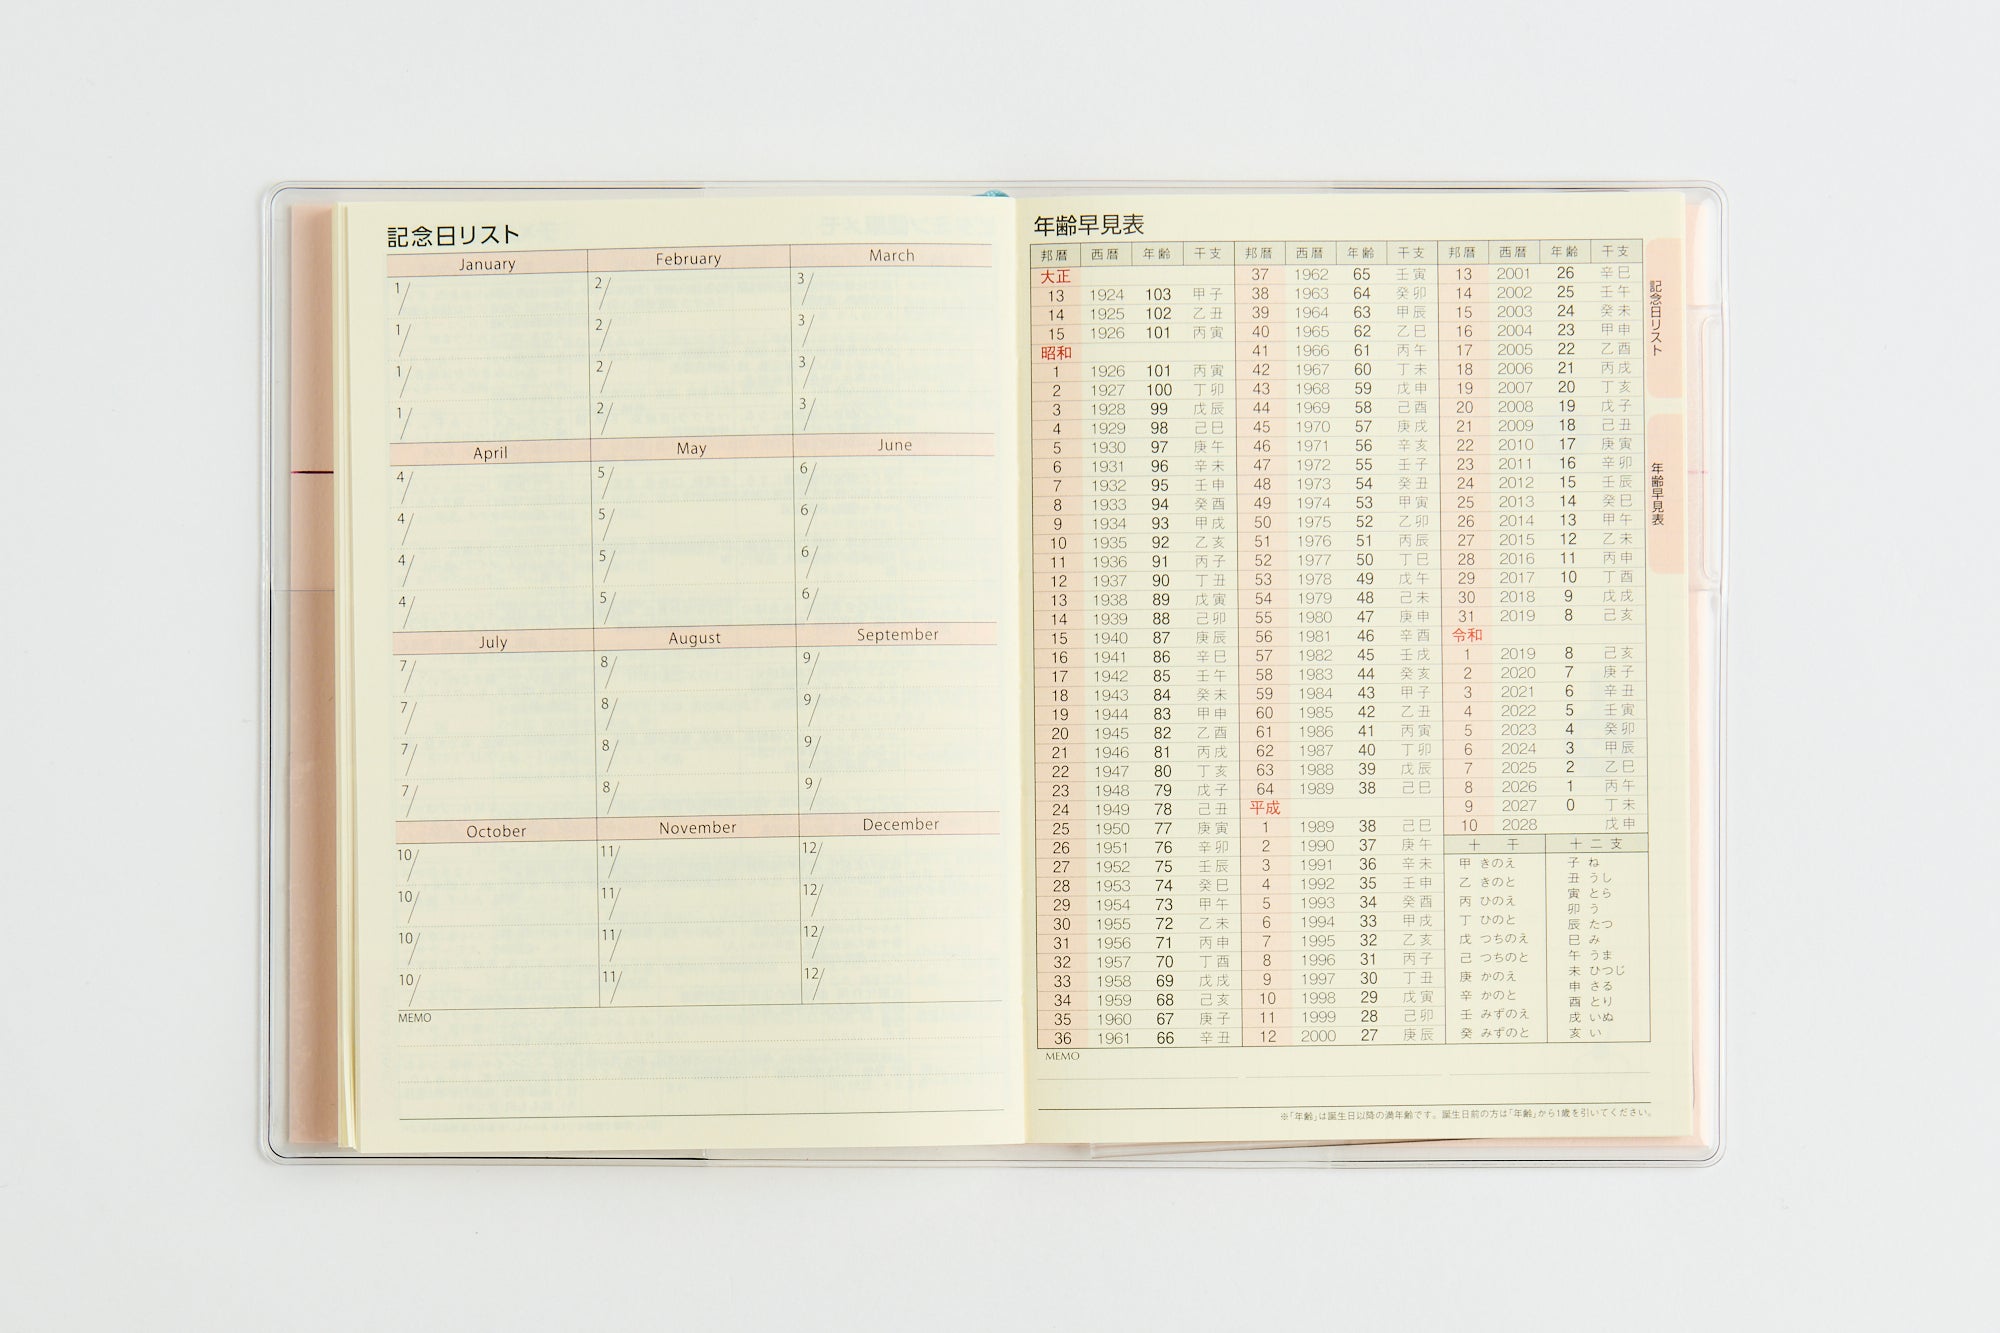 記念日リスト
January February March
1/ 2/ 3/
1/ 2/ 3/
1/ 2/ 3/
1/ 2/ 3/
April May June
4/ 5/ 6/
4/ 5/ 6/
4/ 5/ 6/
4/ 5/ 6/
July August September
7/ 8/ 9/
7/ 8/ 9/
7/ 8/ 9/
7/ 8/ 9/
October November December
10/ 11/ 12/
10/ 11/ 12/
10/ 11/ 12/
10/ 11/ 12/
MEMO
年齢早見表
邦暦 西暦 年齢 干支 邦暦 西暦 年齢 干支 邦暦 西暦 年齢 干支
大正 37 1962 65 壬寅 13 2001 26 辛巳
13 1924 103 甲子 38 1963 64 癸卯 14 2002 25 壬午
14 1925 102 乙丑 39 1964 63 甲辰 15 2003 24 癸未
15 1926 101 丙寅 40 1965 62 乙巳 16 2004 23 甲申
昭和 41 1966 61 丙午 17 2005 22 乙酉
1 1926 101 丙寅 42 1967 60 丁未 18 2006 21 丙戌
2 1927 100 丁卯 43 1968 59 戊申 19 2007 20 丁亥
3 1928 99 戊辰 44 1969 58 己酉 20 2008 19 戊子
4 1929 98 己巳 45 1970 57 庚戌 21 2009 18 己丑
5 1930 97 庚午 46 1971 56 辛亥 22 2010 17 庚寅
6 1931 96 辛未 47 1972 55 壬子 23 2011 16 辛卯
7 1932 95 壬申 48 1973 54 癸丑 24 2012 15 壬辰
8 1933 94 癸酉 49 1974 53 甲寅 25 2013 14 癸巳
9 1934 93 甲戌 50 1975 52 乙卯 26 2014 13 甲午
10 1935 92 乙亥 51 1976 51 丙辰 27 2015 12 乙未
11 1936 91 丙子 52 1977 50 丁巳 28 2016 11 丙申
12 1937 90 丁丑 53 1978 49 戊午 29 2017 10 丁酉
13 1938 89 戊寅 54 1979 48 己未 30 2018 9 戊戌
14 1939 88 己卯 55 1980 47 庚申 31 2019 8 己亥
15 1940 87 庚辰 56 1981 46 辛酉 令和
16 1941 86 辛巳 57 1982 45 壬戌 1 2019 8 己亥
17 1942 85 壬午 58 1983 44 癸亥 2 2020 7 庚子
18 1943 84 癸未 59 1984 43 甲子 3 2021 6 辛丑
19 1944 83 甲申 60 1985 42 乙丑 4 2022 5 壬寅
20 1945 82 乙酉 61 1986 41 丙寅 5 2023 4 癸卯
21 1946 81 丙戌 62 1987 40 丁卯 6 2024 3 甲辰
22 1947 80 丁亥 63 1988 39 戊辰 7 2025 2 乙巳
23 1948 79 戊子 64 1989 38 己巳 8 2026 1 丙午
24 1949 78 己丑 平成 9 2027 0 丁未
25 1950 77 庚寅 1 1989 38 己巳 10 2028 戊申
26 1951 76 辛卯 2 1990 37 庚午 十干 十二支
27 1952 75 壬辰 3 1991 36 辛未
28 1953 74 癸巳 4 1992 35 壬申
29 1954 73 甲午 5 1993 34 癸酉
30 1955 72 乙未 6 1994 33 甲戌
31 1956 71 丙申 7 1995 32 乙亥
32 1957 70 丁酉 8 1996 31 丙子
33 1958 69 戊戌 9 1997 30 丁丑
34 1959 68 己亥 10 1998 29 戊寅
35 1960 67 庚子 11 1999 28 己卯
36 1961 66 辛丑 12 2000 27 庚辰
甲 きのえ
乙 きのと
丙 ひのえ
丁 ひのと
戊 つちのえ
己 つちのと
庚 かのえ
辛 かのと
壬 みずのえ
癸 みずのと
子 ね
丑 うし
寅 とら
卯 う
辰 たつ
巳 み
午 うま
未 ひつじ
申 さる
酉 とり
戌 いぬ
亥 い
MEMO
※「年齢」は誕生日以降の満年齢です。誕生日前の方は「年齢」から1歳を引いてください。
記念日リスト
年齢早見表